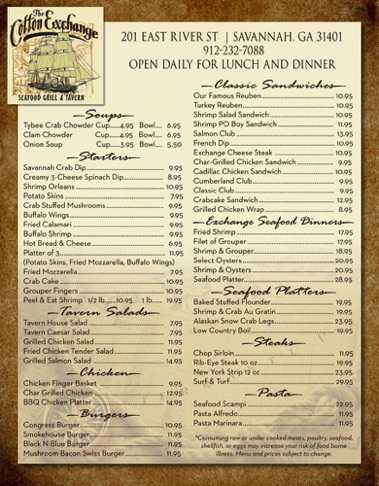 The
Cotton Exchange
SEAFOOD GRILL & TAVERN
201 EAST RIVER ST | SAVANNAH, GA 31401
912-232-7088
OPEN DAILY FOR LUNCH AND DINNER
Soups
Tybee Crab Chowder Cup.....4.95 Bowl.... 6.95
Clam Chowder Cup.....4.95 Bowl.... 6.95
Onion Soup Cup.....3.95 Bowl.... 5.50
Starters
Savannah Crab Dip 9.95
Creamy 3-Cheese Spinach Dip 8.95
Shrimp Orleans 10.95
Potato Skins 7.95
Crab Stuffed Mushrooms 9.95
Buffalo Wings 9.95
Fried Calamari 9.95
Buffalo Shrimp 9.95
Hot Bread & Cheese 6.95
Platter of 3 11.95
(Potato Skins, Fried Mozzarella, Buffalo Wings)
Fried Mozzarella 7.95
Crab Cake 10.95
Grouper Fingers 10.95
Peel & Eat Shrimp 1/2 lb.....10.95 1 lb..... 19.95
Tavern Salads
Tavern House Salad 7.95
Tavern Caesar Salad 7.95
Grilled Chicken Salad 11.95
Fried Chicken Tender Salad 11.95
Grilled Salmon Salad 14.95
Chicken
Chicken Finger Basket 9.95
Char Grilled Chicken 12.95
BBQ Chicken Platter 14.95
Burgers
Congress Burger 10.95
Smokehouse Burger 11.95
Black N Blue Burger 11.95
Mushroom Bacon Swiss Burger 11.95
Classic Sandwiches
Our Famous Reuben 10.95
Turkey Reuben 10.95
Shrimp Salad Sandwich 10.95
Shrimp PO Boy Sandwich 11.95
Salmon Club 13.95
French Dip 10.95
Exchange Cheese Steak 10.95
Char-Grilled Chicken Sandwich 9.95
Cadillac Chicken Sandwich 10.95
Cumberland Club 9.95
Classic Club 9.95
Crabcake Sandwich 12.95
Grilled Chicken Wrap 8.95
Exchange Seafood Dinners
Fried Shrimp 17.95
Filet of Grouper 17.95
Shrimp & Grouper 18.95
Select Oysters 20.95
Shrimp & Oysters 20.95
Seafood Platter 28.95
Seafood Platters
Baked Stuffed Flounder 19.95
Shrimp & Crab Au Gratin 19.95
Alaskan Snow Crab Legs 23.95
Low Country Boil 19.95
Steaks
Chop Sirloin 11.95
Rib-Eye Steak 10 oz 19.95
New York Strip 12 oz 23.95
Surf & Turf 29.95
Pasta
Seafood Scampi 22.95
Pasta Alfredo 11.95
Pasta Marinara 11.95
*Consuming raw or under cooked meats, poultry, seafood,
shellfish, or eggs may increase your risk of food borne
illness. Menu and prices subject to change.